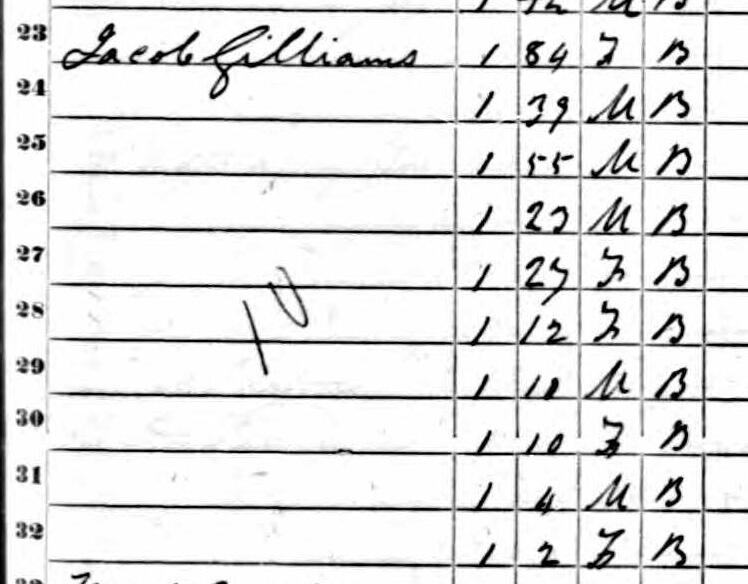 1 M B
23 Jacob Gilliams 1 84 F B
24 1 39 M B
25 1 55 M B
26 1 23 M B
27 1 27 F B
28 1 12 F B
29 1 10 M B
30 1 10 F B
31 1 4 M B
32 1 2 F B
10